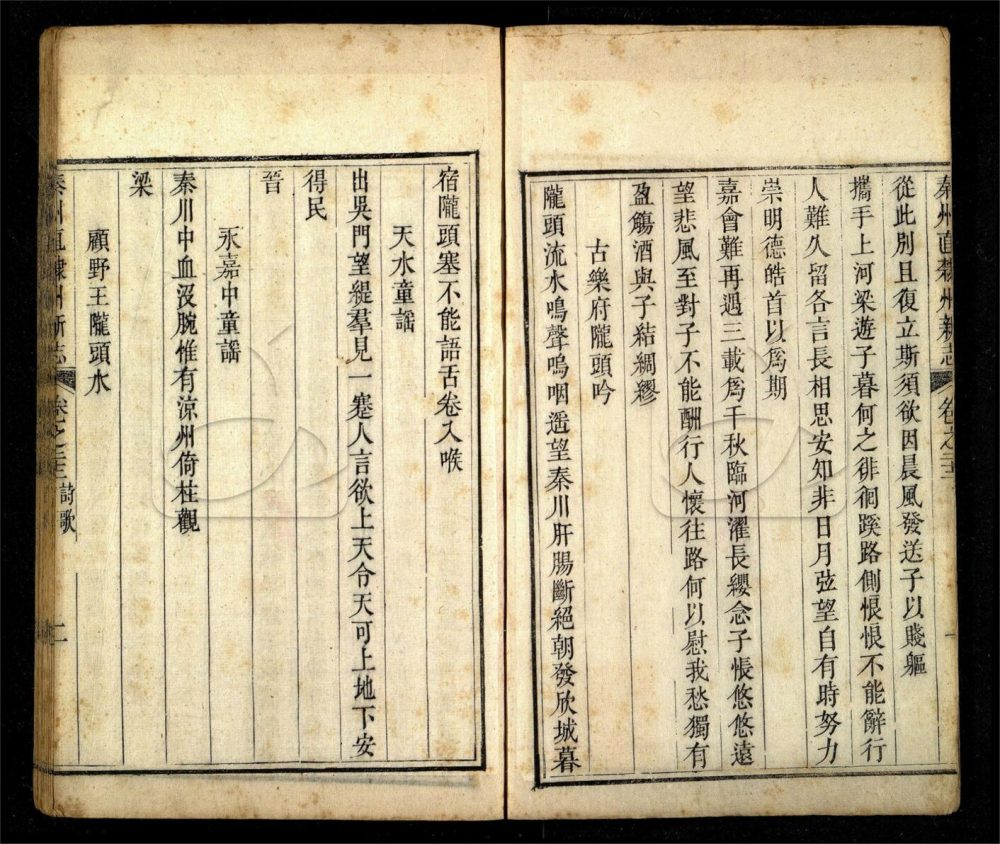 秦州直隸州新志 卷之二十三
從此別且復立斯須欲因晨風發送子以賤軀
攜手上河梁遊子暮何之徘徊蹊路側悢悢不能辭行
人難久留各言長相思安知非日月弦望自有時努力
崇明德皓首以爲期
嘉會難再遇三載爲千秋臨河濯長纓念子悵悠悠遠
望悲風至對子不能酬行人懷往路何以慰我愁獨有
盈觴酒與子結綢繆
古樂府隴頭吟
隴頭流水鳴聲嗚咽遥望秦川肝腸斷絕朝發欣城暮
宿隴頭寒不能語舌卷入喉
天水童謡
出吳門望緹羣見一蹇人言欲上天令天可上地下安
得民
晉
永嘉中童謡
秦川中血沒腕惟有涼州倚柱觀
梁
顧野王隴頭水
秦州直隸州新志 卷之二十三 詩歌 二